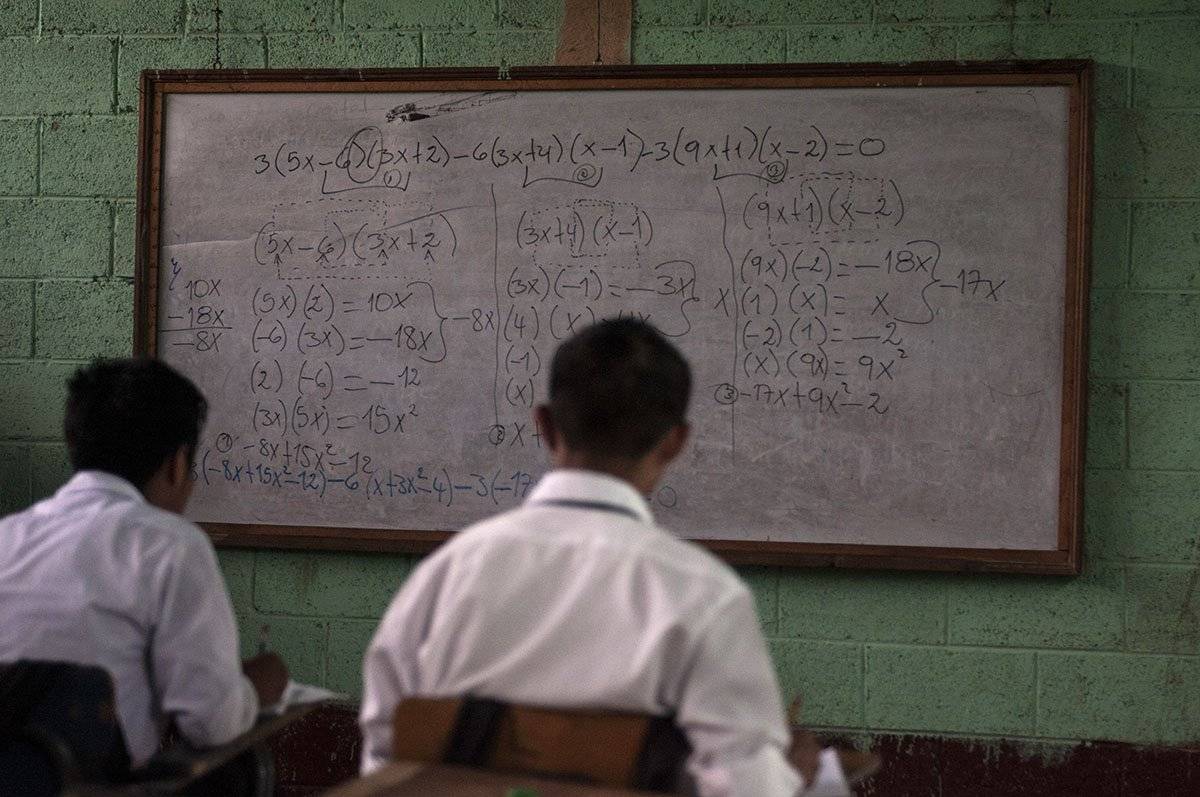 3(5x-6)(3x+2)-6(3x+4)(x-1)-3(9x+1)(x-2)=0
① ② ③
(5x-6)(3x+2)
10x
-18x
-8x
(5x)(2)=10x
(-6)(3x)=-18x
-8x
(2)(-6)=-12
(3x)(5x)=15x²
① -8x+15x²-12
(3x+4)(x-1)
(3x)(-1)=-3x
(4)(x)
x
(-1)
(x)
② x+
(9x+1)(x-2)
(9x)(-2)=-18x
(1)(x)=x
-17x
(-2)(1)=-2
(x)(9x)=9x²
③ -17x+9x²-2
3(-8x+15x²-12)-6(x+3x²-4)-3(-17 =0